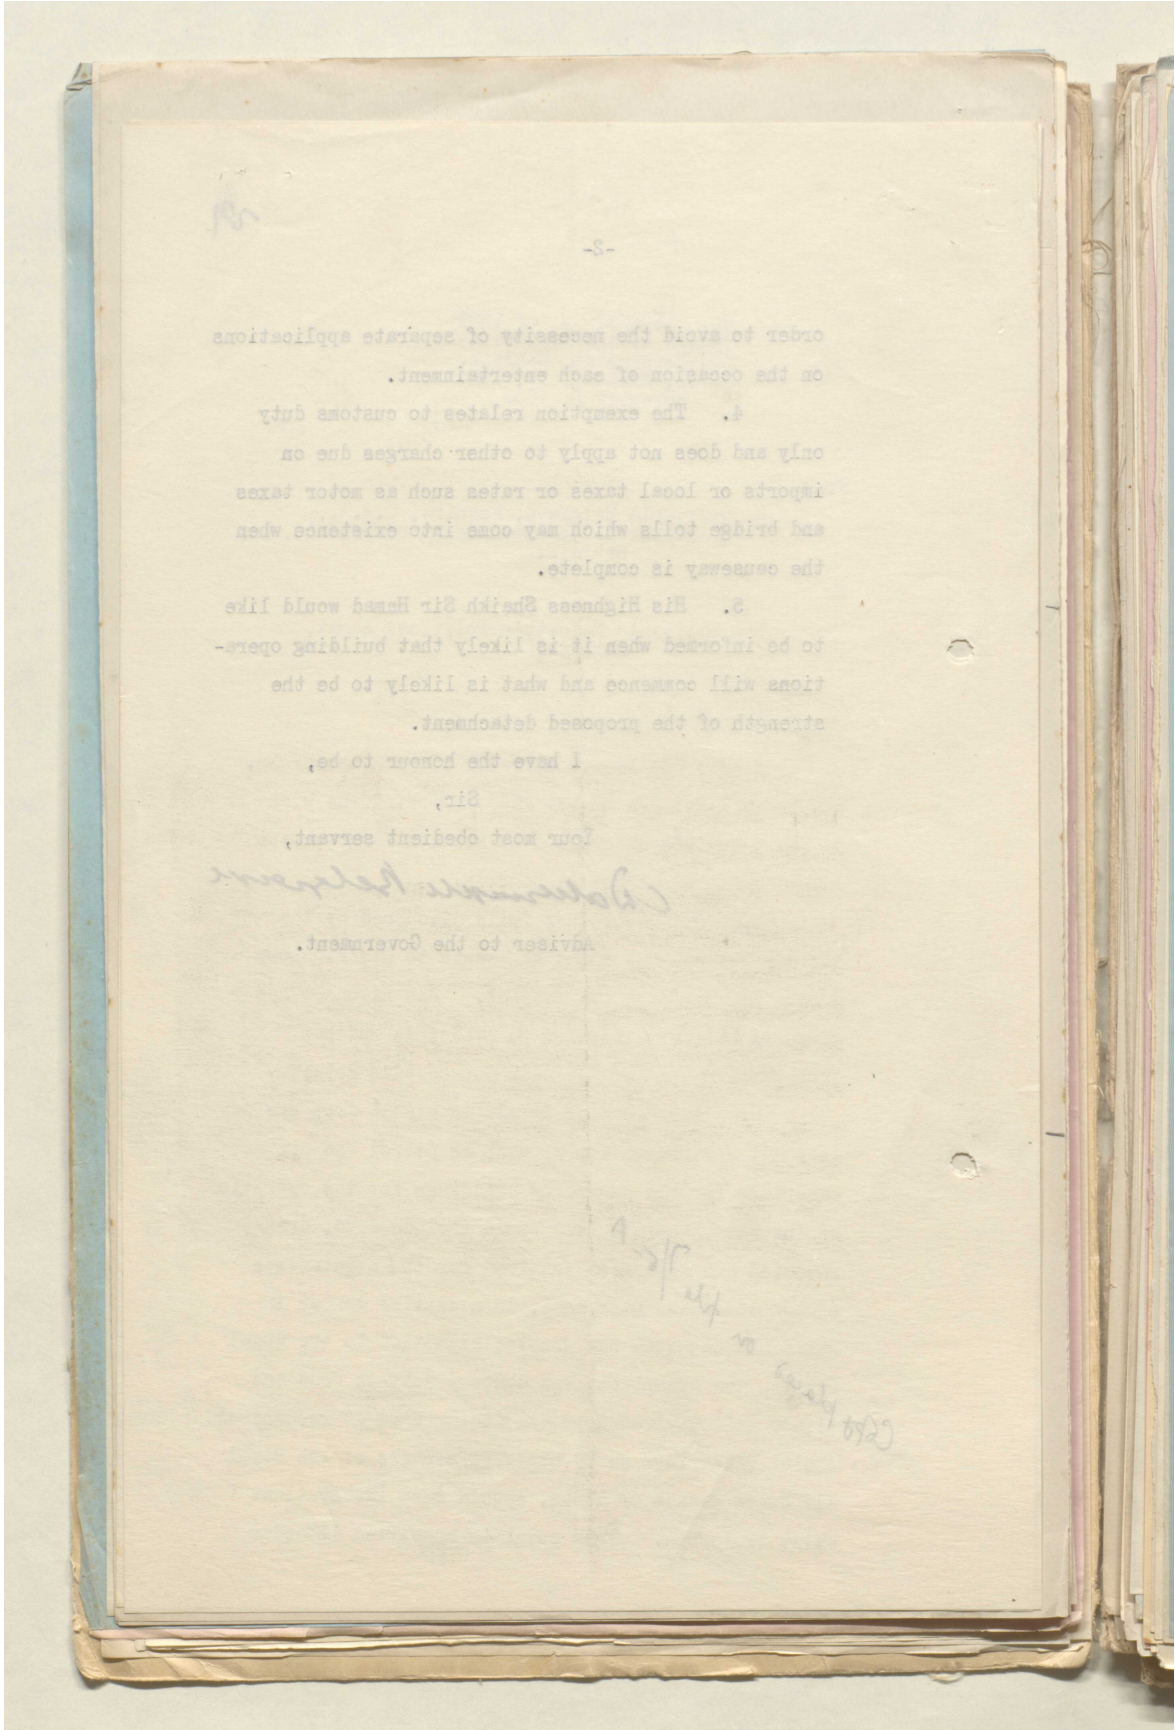 -2-
order to avoid the necessity of separate applications
on the occasion of each entertainment.
4. The exemption relates to customs duty
only and does not apply to other charges due on
imports or local taxes or rates such as motor taxes
and bridge tolls which may come into existence when
the causeway is complete.
5. His Highness Shaikh Sir Hamad would like
to be informed when it is likely that building opera-
tions will commence and what is likely to be the
strength of the proposed detachment.
I have the honour to be,
Sir,
Your most obedient servant,
Adviser to the Government.